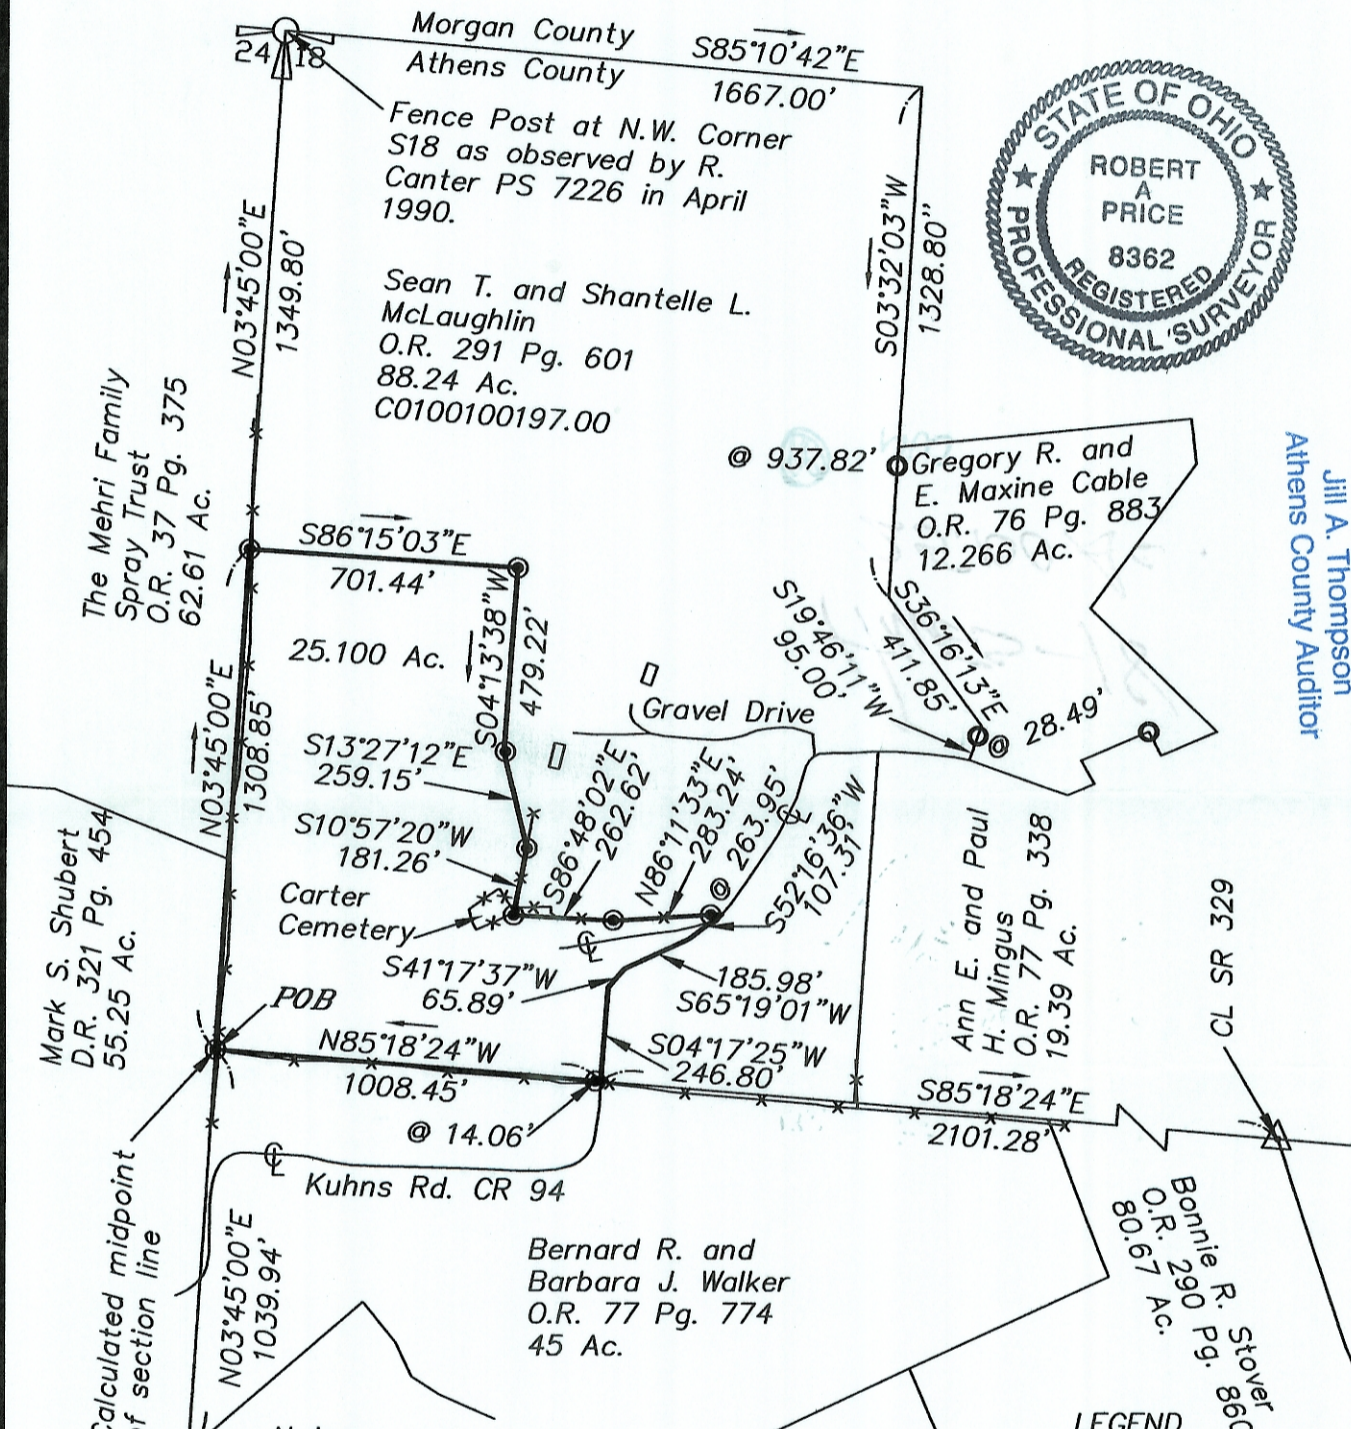 Morgan County
S85°10'42"E
24
18
Athens County
1667.00'
Fence Post at N.W. Corner
S18 as observed by R.
Canter PS 7226 in April
1990.
STATE OF OHIO
PROFESSIONAL SURVEYOR
REGISTERED
ROBERT
A
PRICE
8362
N03°45'00"E
1349.80'
S03°32'03"W
1328.80"
Sean T. and Shantelle L.
McLaughlin
O.R. 291 Pg. 601
88.24 Ac.
C0100100197.00
The Mehri Family
Spray Trust
O.R. 37 Pg. 375
62.61 Ac.
@ 937.82'
Gregory R. and
E. Maxine Cable
O.R. 76 Pg. 883
12.266 Ac.
Jill A. Thompson
Athens County Auditor
S86°15'03"E
701.44'
25.100 Ac.
S04°13'38"W
479.22'
S19°46'11"W
95.00'
S36°16'13"E
411.85'
@ 28.49'
Gravel Drive
N03°45'00"E
1308.85'
S13°27'12"E
259.15'
S10°57'20"W
181.26'
S86°48'02"E
262.62'
N86°11'33"E
283.24'
@ 263.95'
S52°16'36"W
107.31'
Carter
Cemetery
Mark S. Shubert
D.R. 321 Pg. 454
55.25 Ac.
Ann E. and Paul
H. Mingus
O.R. 77 Pg. 338
19.39 Ac.
CL SR 329
S41°17'37"W
65.89'
185.98'
S65°19'01"W
POB
N85°18'24"W
1008.45'
S04°17'25"W
246.80'
S85°18'24"E
2101.28'
@ 14.06'
Kuhns Rd. CR 94
Calculated midpoint
of section line
N03°45'00"E
1039.94'
Bernard R. and
Barbara J. Walker
O.R. 77 Pg. 774
45 Ac.
Bonnie R. Stover
O.R. 290 Pg. 860
80.67 Ac.
LEGEND